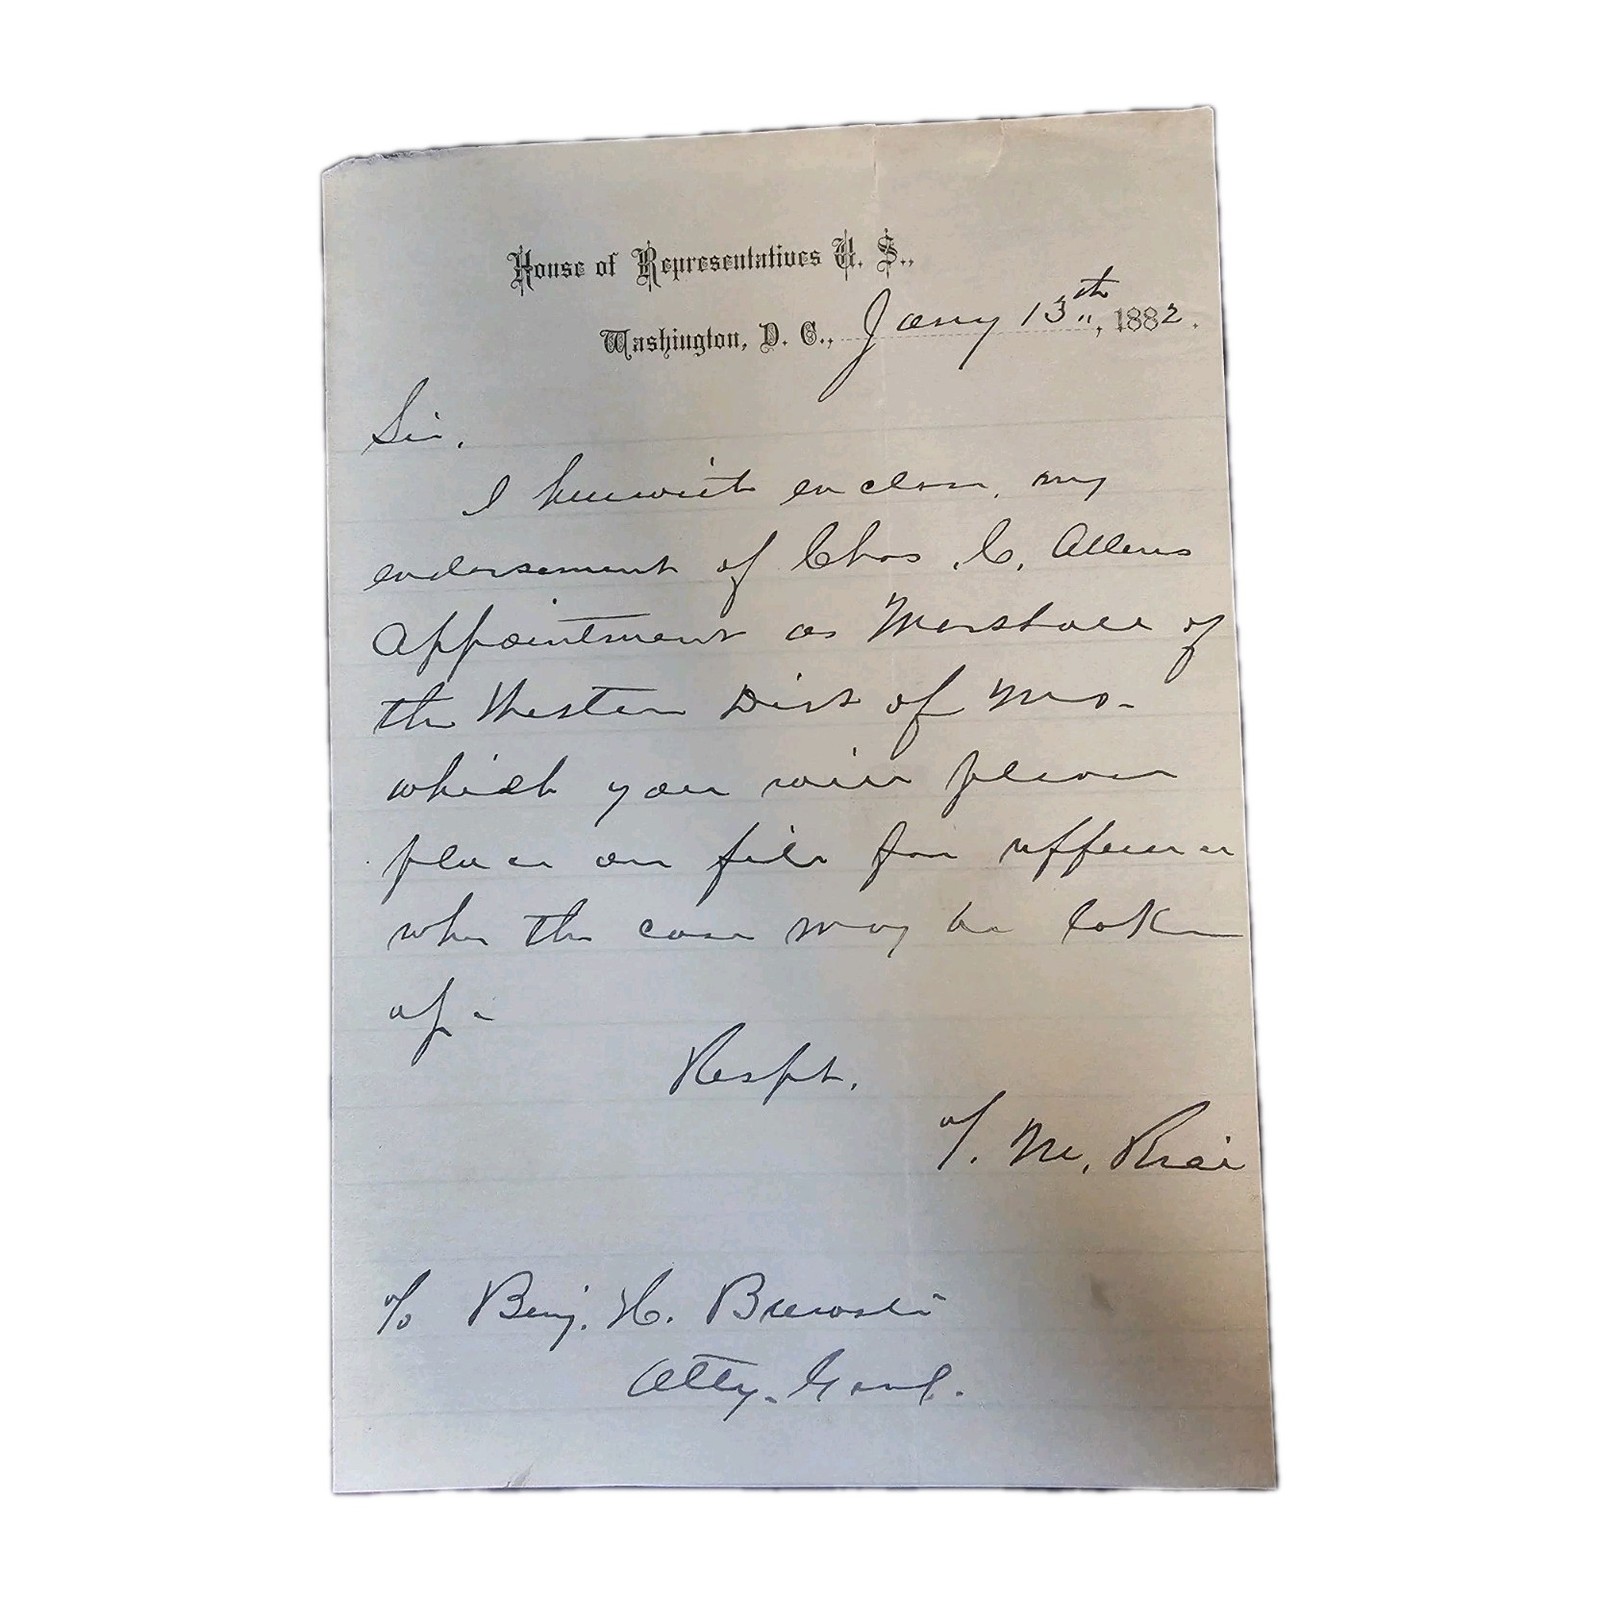 House of Representatives U. S.,
Washington, D. C., Jany 13th, 1882.
Sir,
I herewith enclose my
endorsement of Chas. C. Allens
Appointment as Marshall of
the Western Dist of Mo-
which you will please
place on file for refference
when the case may be taken
up-
Respt.
T. M. Rice
To Benj. H. Brewster
Atty. Genl.